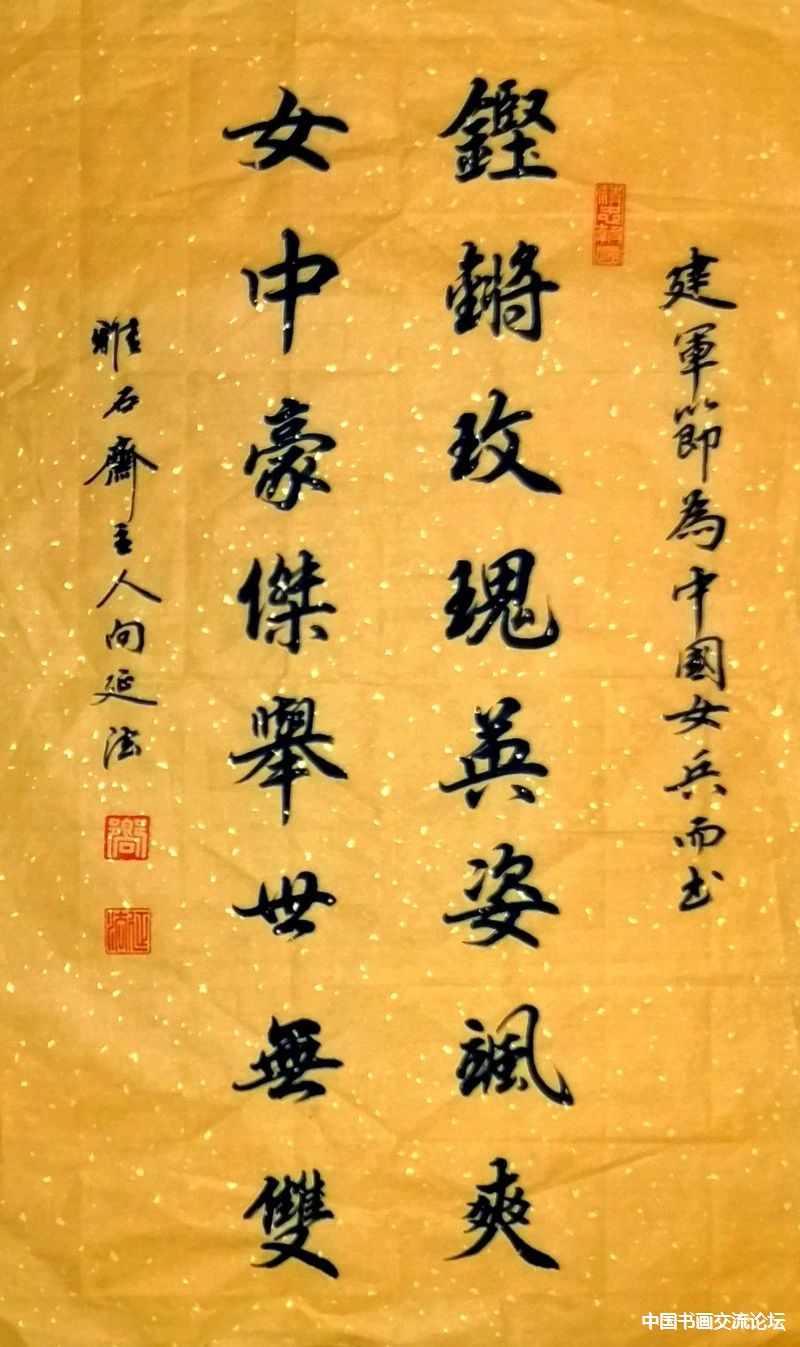 建軍節為中國女兵而书
精忠報國
鏗鏘玫瑰英姿颯爽
女中豪傑舉世無雙
雅石齋主人向延法
延法
中国书画交流论坛